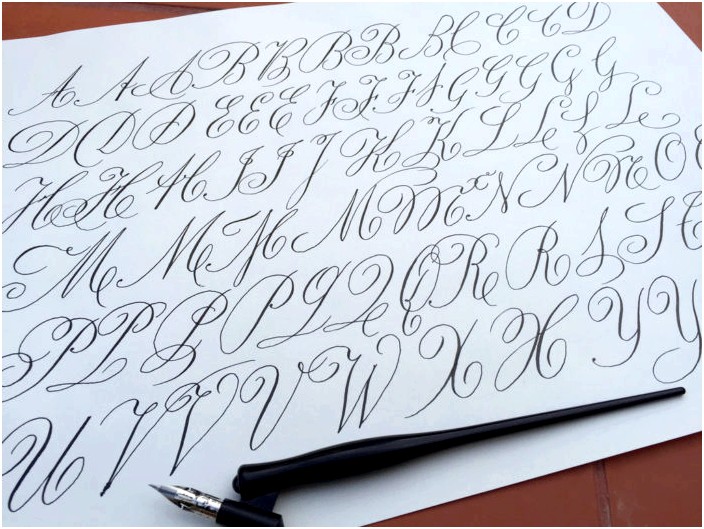 A A A B B B B B C C C D
D D D E E E F F F G G G G G
H H H I I J K K L L L L
M M M M M N N N O O
P P P P Q Q Q R R S S
U V V V W X X Y Y